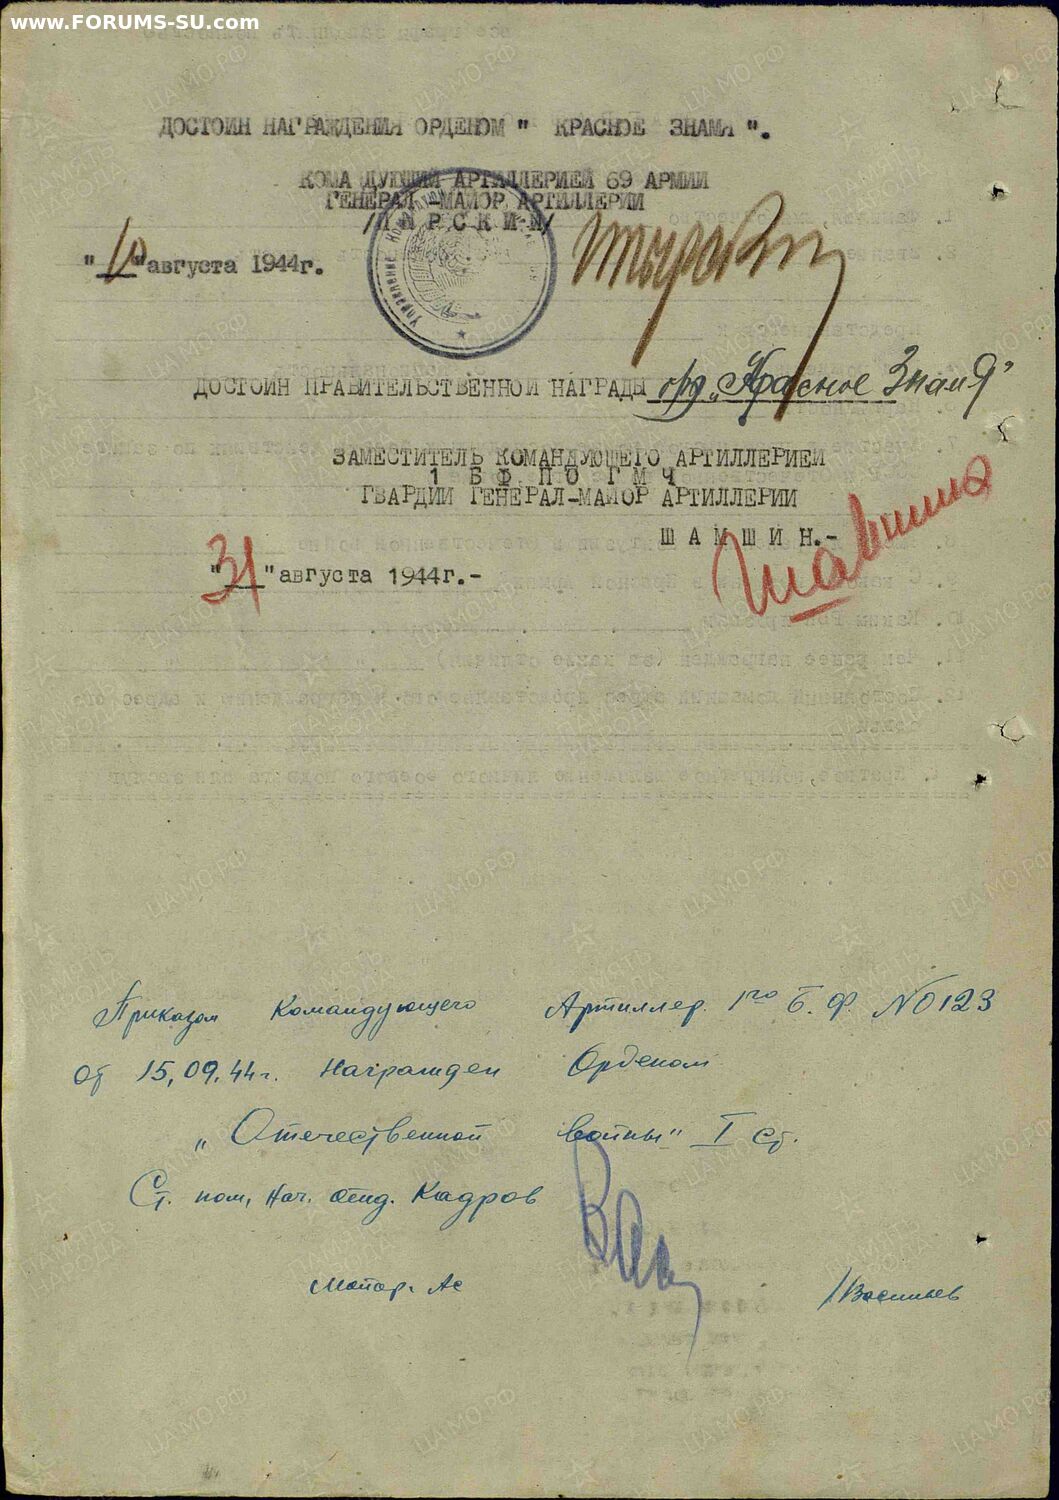 www.FORUMS-SU.com
ДОСТОИН НАГРАЖДЕНИЯ ОРДЕНОМ " КРАСНОЕ ЗНАМЯ ".
КОМА ДУЮЩИЙ АРТИЛЛЕРИЕЙ 69 АРМИИ
ГЕНЕРАЛ-МАЙОР АРТИЛЛЕРИИ
"10" августа 1944г.
Управление
ДОСТОИН ПРАВИТЕЛЬСТВЕННОЙ НАГРАДЫ орд. „Красное Знамя"
ЗАМЕСТИТЕЛЬ КОМАНДУЮЩЕГО АРТИЛЛЕРИЕЙ
1 БФ ПО ГМЧ
ГВАРДИИ ГЕНЕРАЛ-МАЙОР АРТИЛЛЕРИИ
ШАМШИН.-
"31" августа 1944г.-
Приказом Командующего Артиллер. 1го Б.Ф. №0123
от 15,09.44г. Награжден Орденом
„Отечественной войны" I ст.
Ст. пом. Нач. отд. Кадров
Майор. Ас
/Васильев
ЦАМО.РФ
ПАМЯТЬ НАРОДА